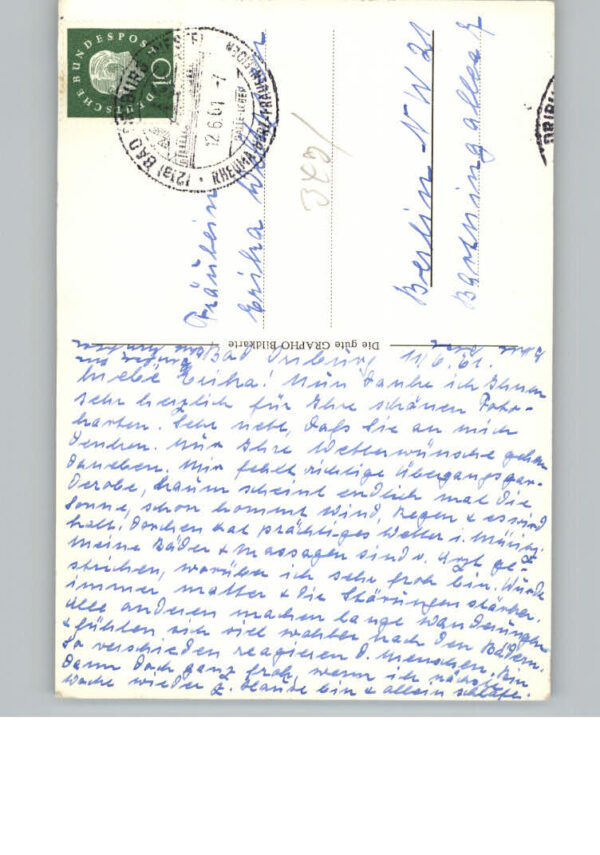 DEUTSCHE BUNDESPOST
10
(21a) BAD DRIBURG (WESTF)
12.6.61
RHEUMA HERZ FRAUENLEIDEN
GALLE-LEBER
Fräulein
Erika
Berlin NW 21
Bartningallee
Die gute GRAPHO Bildkarte
Bad Driburg, 11/6.61.
Liebe Erika! Nun danke ich Ihnen
sehr herzlich für Ihre schönen Foto-
karten. Sehr nett, daß Sie an mich
denken. Nur Ihre Wetterwünsche gehen
daneben. Mir fehlt richtige Übergangsgar-
derobe, kaum scheint endlich mal die
Sonne, schon kommt Wind, Regen & es wird
kalt. Dorchen hat prächtiges Wetter i.
Meine Bäder & Massagen sind v. Arzt ge-
strichen, worüber ich sehr froh bin. Wurde
immer matter & die Störungen stärker.
Alle anderen machen lange Wanderungen
& fühlen sich viel wohler nach den Bädern.
So verschieden reagieren d. Menschen. Bin
dann doch ganz froh, wenn ich nächste
Woche wieder z. Hause bin & allein schlafe.